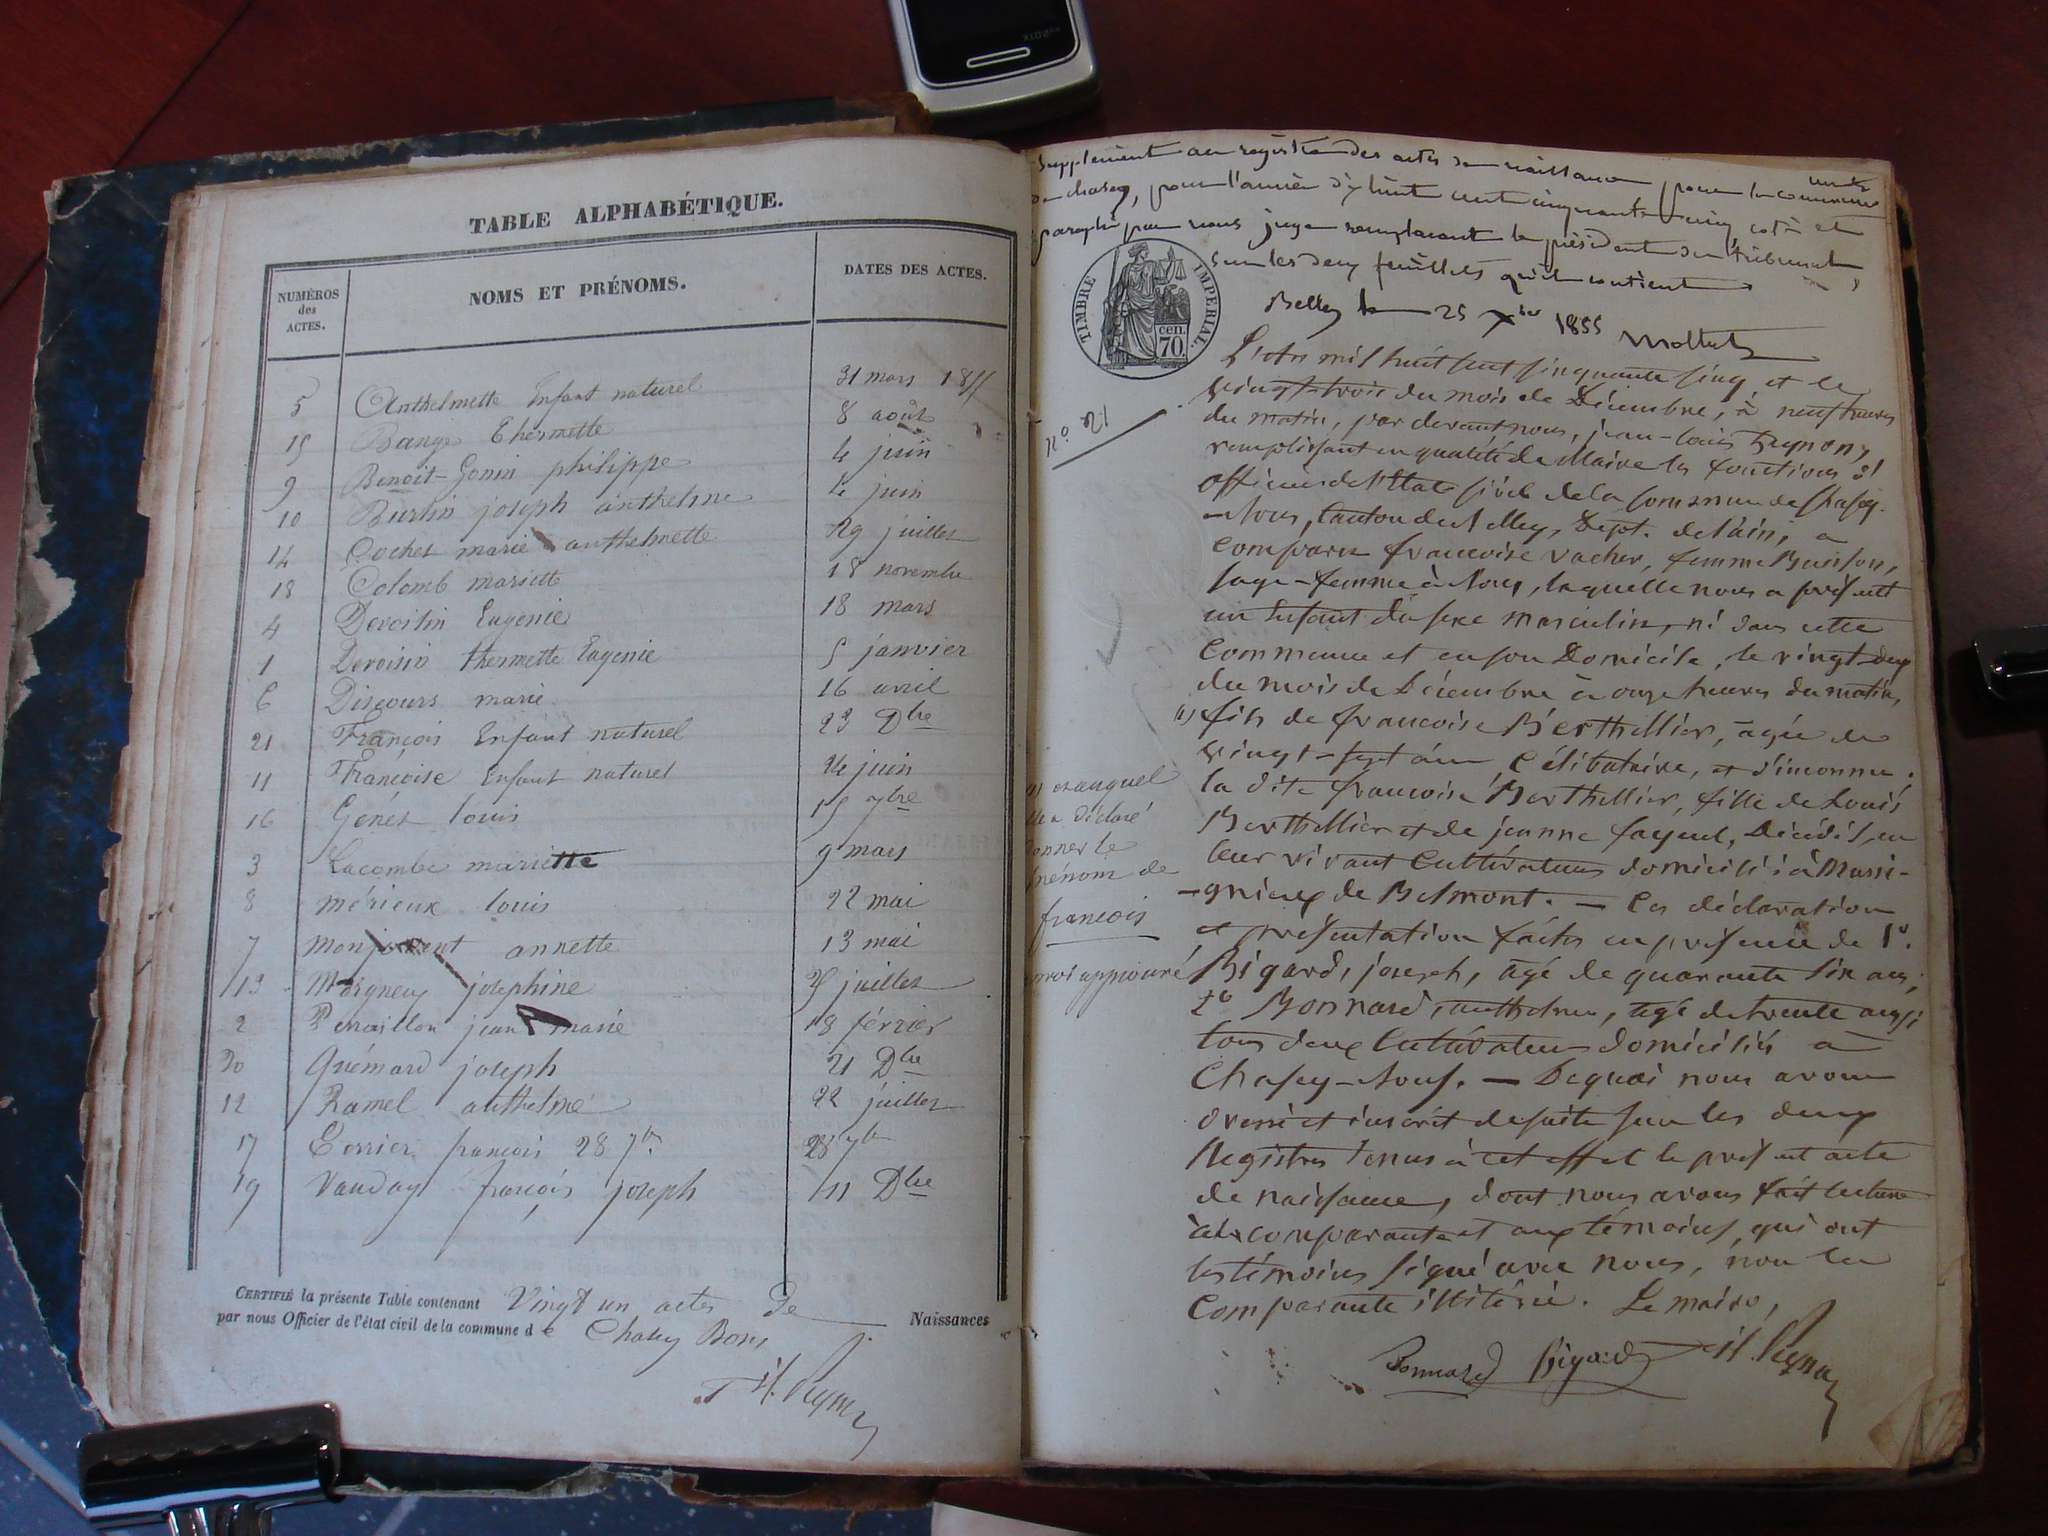 TABLE ALPHABÉTIQUE.
NUMÉROS des ACTES. NOMS ET PRÉNOMS. DATES DES ACTES.
5 Anthelmette Enfant naturel 31 mars 1855
15 Bange thermette 8 août
9 Benoit-Gonin philippe 4 juin
10 Burlin joseph anthelme 4 juin
14 Cochet marie anthelmette 29 juillet
18 Colomb mariette 18 novembre
4 Devoisin Eugenie 18 mars
1 Devoisin thermette Eugenie 5 janvier
6 Discours marie 16 avril
21 François Enfant naturel 23 Dbre
11 Françoise Enfant naturel 14 juin
16 Genet louis 15 7bre
3 Lacombe mariette 9 mars
8 mérieux louis 22 mai
7 annette 13 mai
13 josephine juillet
2 Perraillon jean marie 18 février
20 Guémard joseph 21 Dbre
12 Ramel anthelme 22 juillet
17 françois 28 7bre 28 7bre
19 Vauday françois joseph 11 Dbre
CERTIFIÉ la présente Table contenant Vingt un actes De Naissances
par nous Officier de l'état civil de la commune de Chazey Bons
Supplément au registre des actes de naissance pour la commune
de chazey, pour l'année dix huit cent cinquante cinq, coté et
paraphé par nous juge remplacant le président du tribunal,
sur les deux feuillets qu'il contient
TIMBRE IMPERIAL.
cen. 70.
Belley le 25 Xbre 1855
L'an mil huit cent cinquante cinq et le
vingt-trois du mois de Décembre, à neuf heures
No. 21
du matin, par devant nous, jean-louis
remplissant en qualité de Maire les fonctions d'
officier de l'état civil de la commune de Chazey
-Bons, canton de Belley, Dépt. de l'ain, a
comparu francoise vacher, femme Buisson,
sage-femme à Bons, laquelle nous a présenté
un Enfant du sexe masculin, né dans cette
Commune et en son Domicile, le vingt-deux
du mois de Décembre à onze heures du matin,
(1) fils de francoise Berthellier, agée de
vingt-sept ans Célibataire, et d'inconnu.
la dite francoise Berthellier, fille de Louis
Berthellier et de jeanne, décédés, en
leur vivant Cultivateurs domiciliés à Massi-
-gnieux de Belmont. - Ces déclaration
et présentation faites en présence de 1°.
Bigard, joseph, agé de quarante six ans;
2° Bonnard, anthelme, agé de trente ans;
tous deux Cultivateurs domiciliés à
Chasey-Bons. - De quoi nous avons
dressé et inscrit de suite sur les deux
Registres tenus à cet effet le présent acte
de naissance, dont nous avons fait lecture
à la comparante et aux témoins, qui ont
les témoins signé avec nous, non la
Comparante illitérée. Le maire,
Bonnard Bigard
(1) et auquel
elle a déclaré
donner le
prénom de
francois
renvoi approuvé